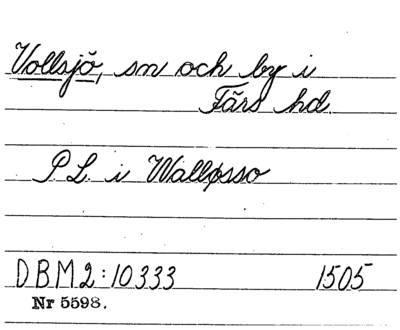 Vollsjö, sn och by i
Färs hd.
P.L. i Walløsso
DBM2:10333 1505
Nr 5598.